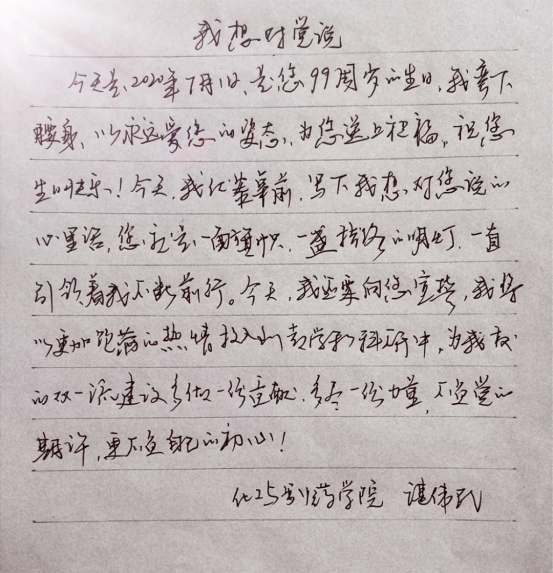 我想对党说
今天是2020年7月1日,是您99周岁的生日,我弯下
腰身,以永远爱您的姿态,为您送上祝福,祝您
生日快乐!今天,我在党章前,写下我想对您说的
心里话,您就是一面旗帜,一盏指路的明灯,一直
引领着我不断前行。今天,我还要向您宣誓,我将
以更加饱满的热情投入到教学和科研中,为我校
的双一流建设多做一份贡献,多尽一份力量,不负党的
期许,更不负自己的初心!
化工与制药学院 谌伟民